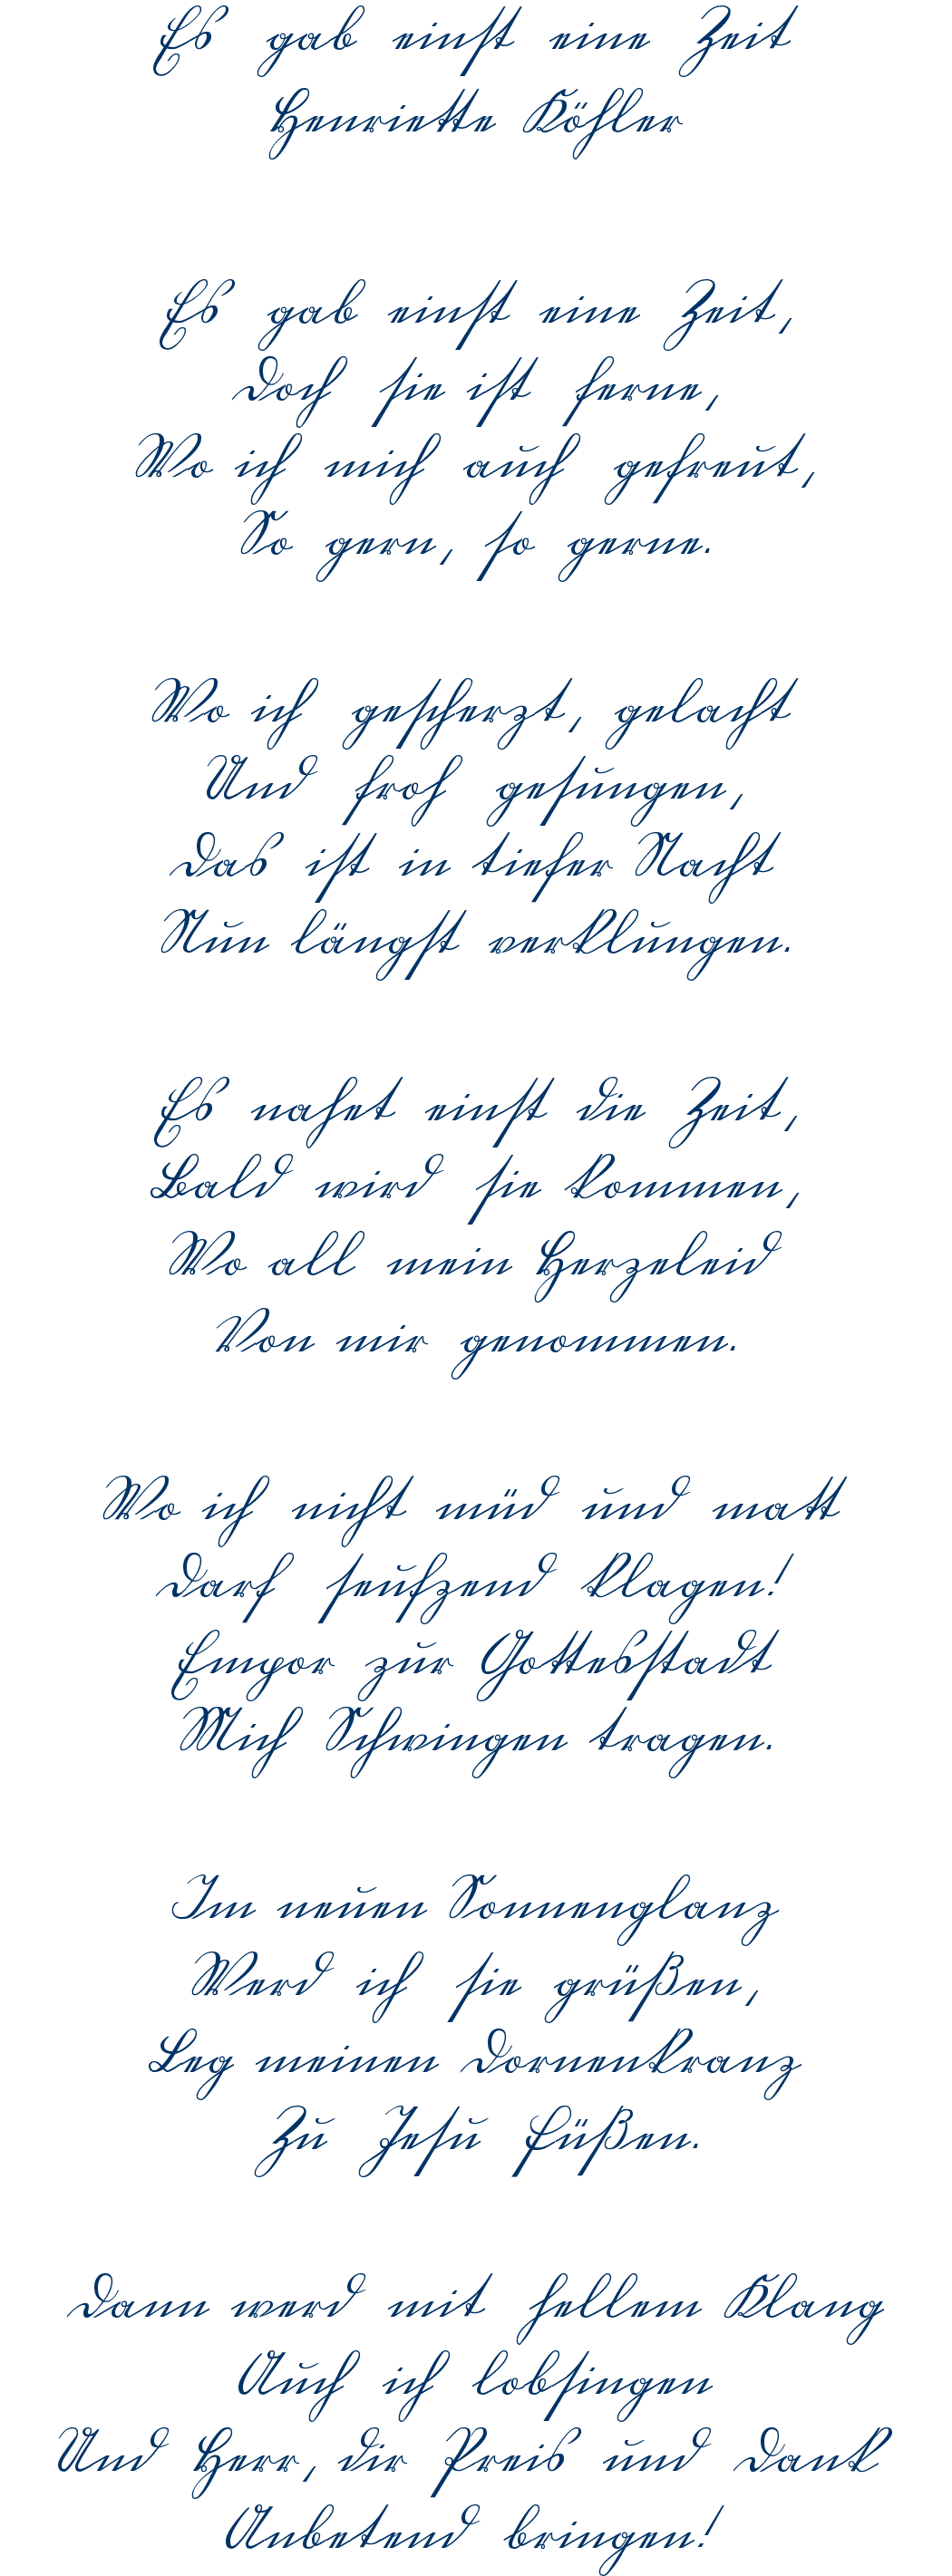 Es gab einst eine Zeit
Henriette Köhler
Es gab einst eine Zeit,
Doch sie ist ferne,
Wo ich mich auch gefreut,
So gern, so gerne.
Wo ich gescherzt, gelacht
Und froh gesungen,
Das ist in tiefer Nacht
Nun längst verklungen.
Es nahet einst die Zeit,
Bald wird sie kommen,
Wo all mein Herzeleid
Von mir genommen.
Wo ich nicht müd und matt
Darf seufzend klagen!
Empor zur Gottesstadt
Mich Schwingen tragen.
Im neuen Sonnenglanz
Werd ich sie grüßen,
Leg meinen Dornenkranz
Zu Jesu Füßen.
Dann werd mit hellem Klang
Auch ich lobsingen
Und Herr, dir Preis und Dank
Anbetend bringen!